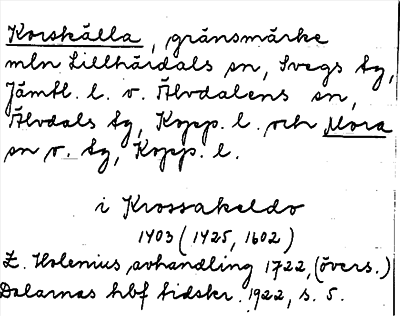 Korskälla, gränsmärke
mln Lillhärdals sn, Svegs tg,
Jämtl. l. o. Älvdalens sn,
Älvdals tg, Kopp. l. och Mora
sn o. tg, Kopp. l.
i Krossakeldo
1403 (1425, 1602)
E. Holenius, avhandling 1722, (övers.)
Dalarnas hbf tidskr. 1922, s. 5.